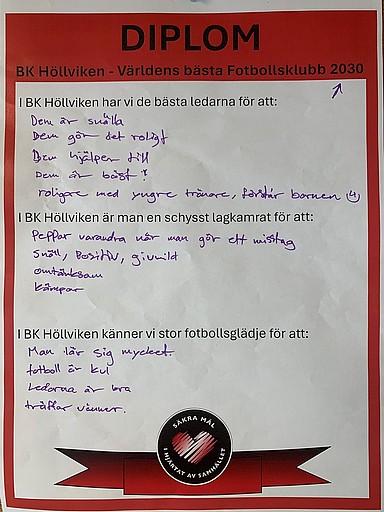 DIPLOM
BK Höllviken - Världens bästa Fotbollsklubb 2030
I BK Höllviken har vi de bästa ledarna för att:
Dem är snälla
Dem gör det roligt
Dem hjälper till
Dem är bäst!
roligare med yngre tränare, förstår barnen
I BK Höllviken är man en schysst lagkamrat för att:
Peppar varandra när man gör ett misstag
Snäll, Positiv, givmild
omtänksam
kämpar
I BK Höllviken känner vi stor fotbollsglädje för att:
Man lär sig mycket.
fotboll är kul
Ledarna är bra
träffar vänner.
SÄKRA MÅL
I HJÄRTAT AV SAMHÄLLET